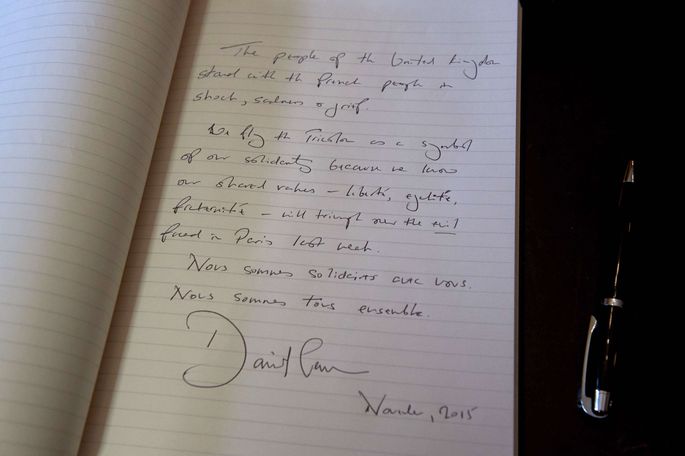 The people of the United Kingdom
stand with the French people in
shock, sadness & grief.
We fly the Tricolor as a symbol
of our solidarity because we know
our shared values – liberté, egalité,
fraternité – will triumph over the evil
faced in Paris last week.
Nous sommes solidaires avec vous.
Nous sommes tous ensemble.
David Cameron
November, 2015